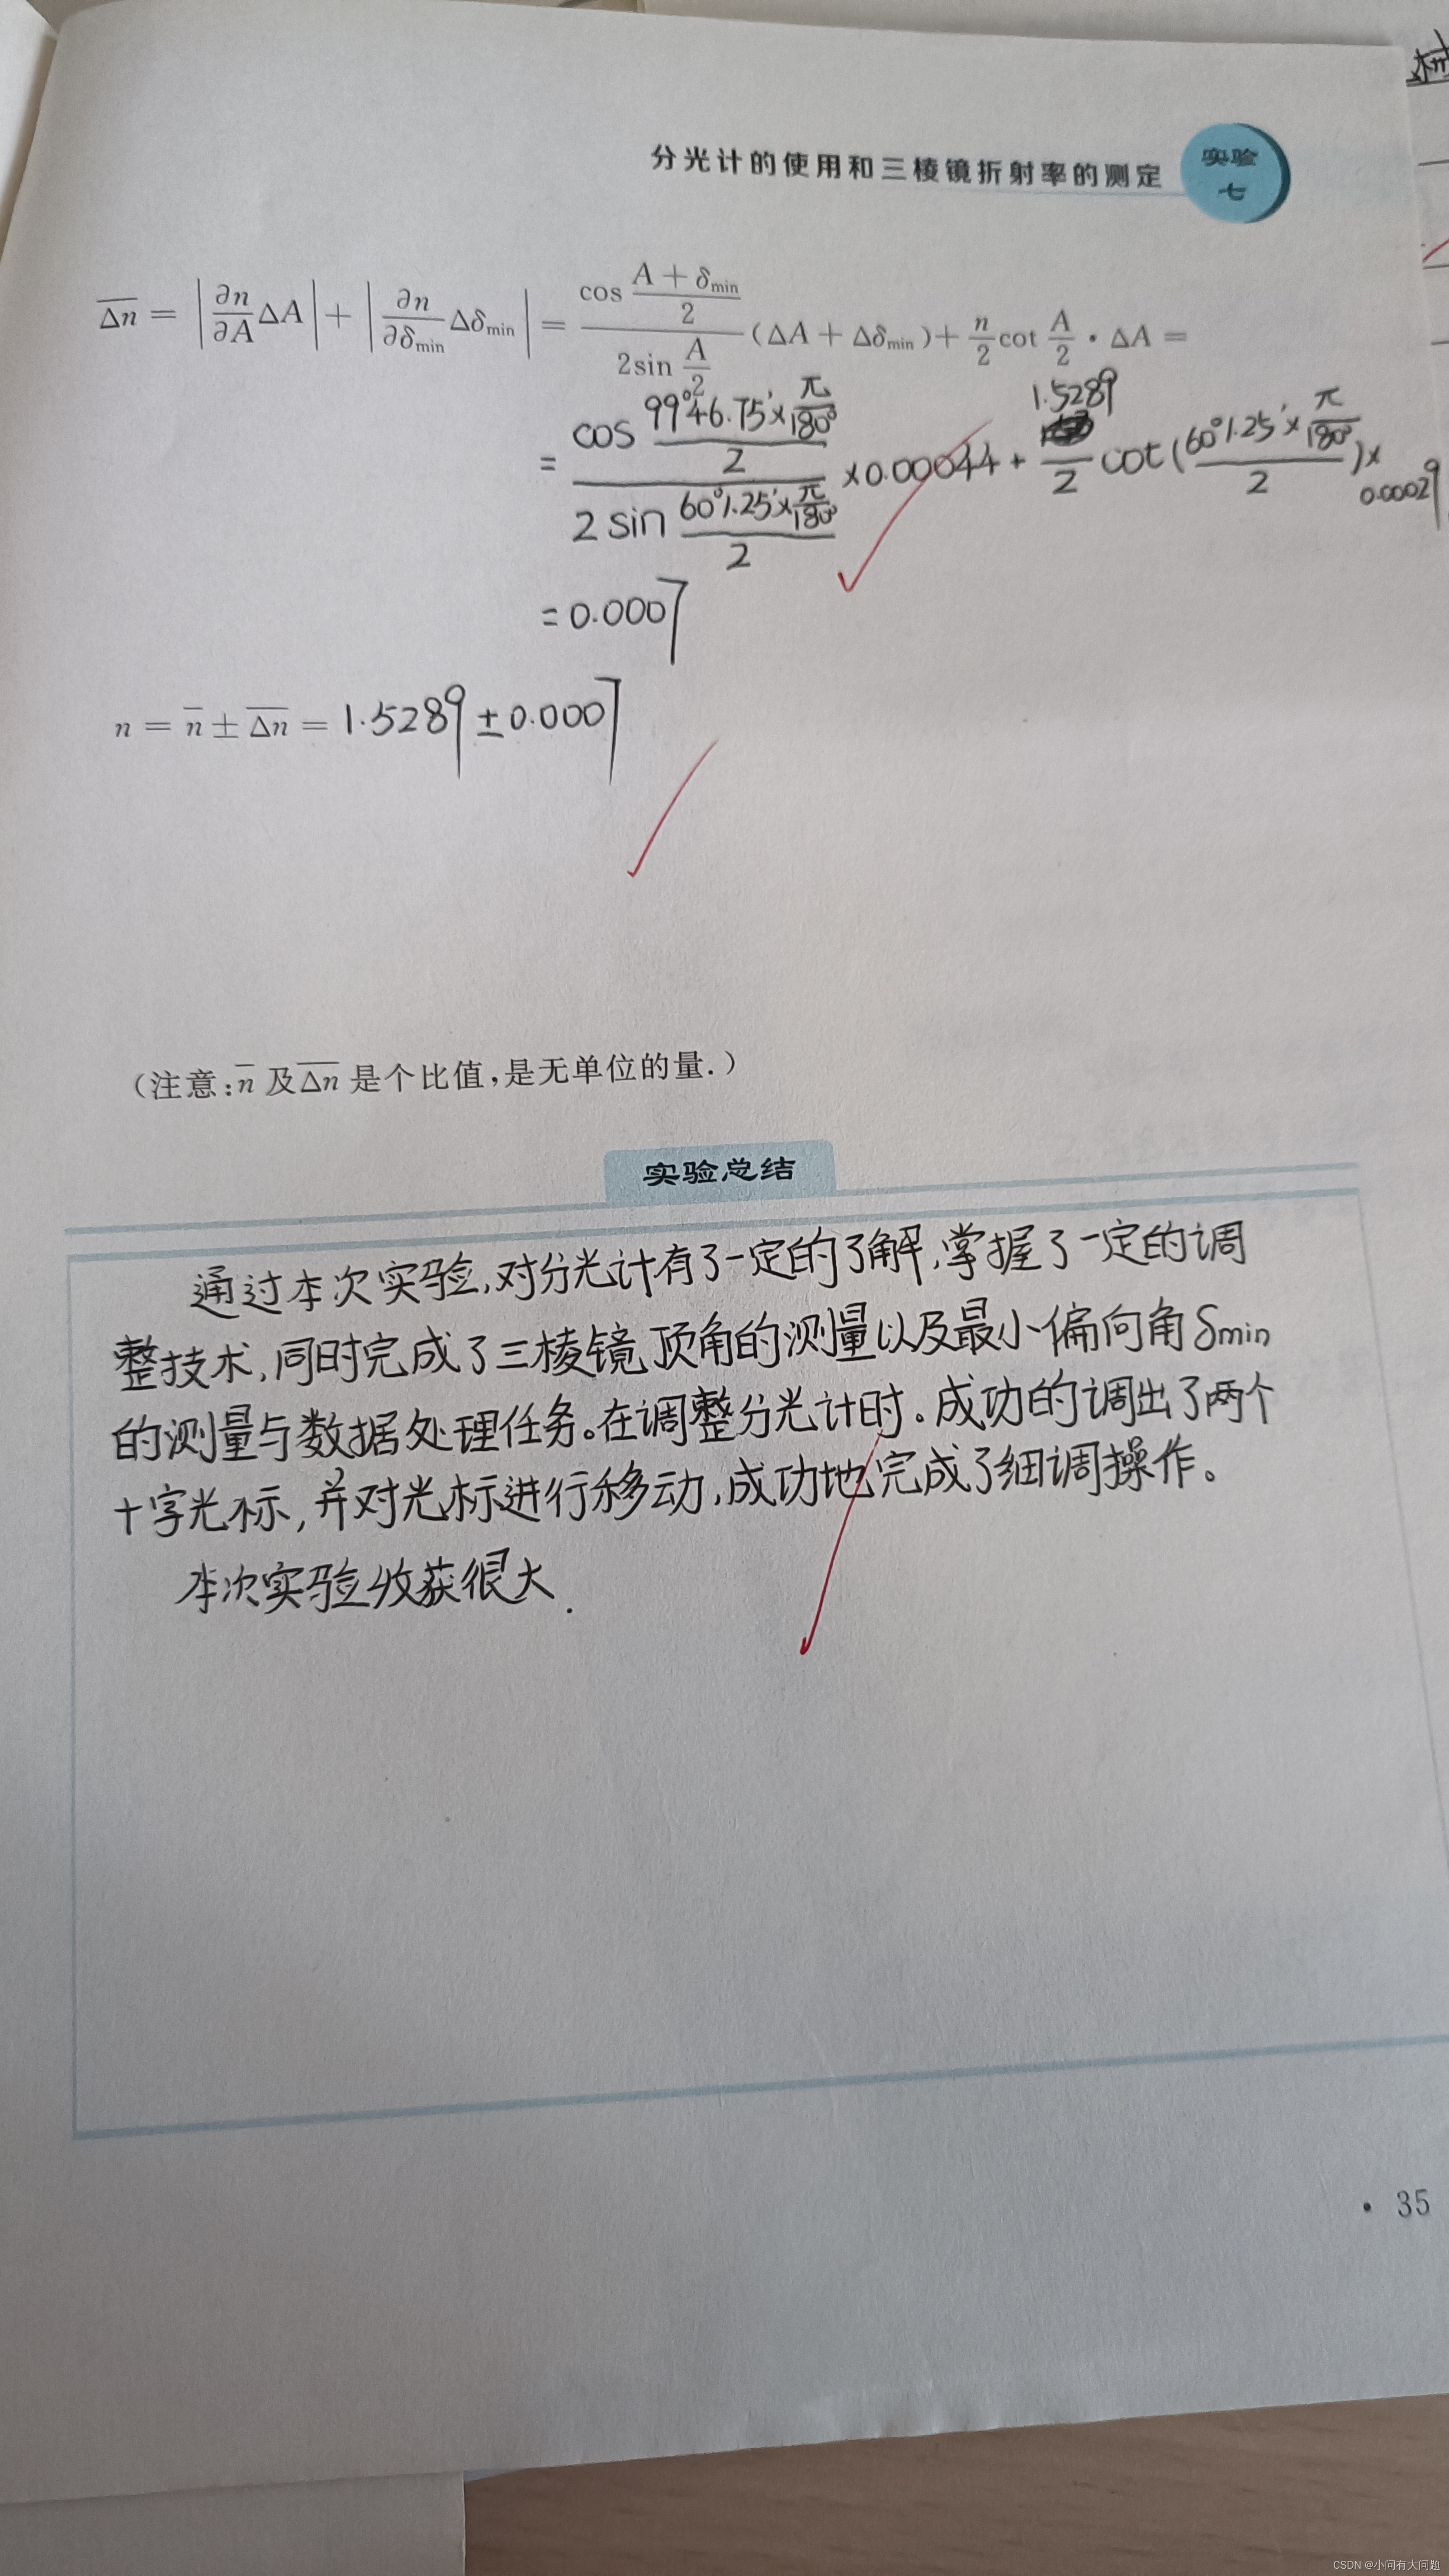 分光计的使用和三棱镜折射率的测定
实验
七
\overline{Δn} = |∂n/∂A ΔA| + |∂n/∂δmin Δδmin| = cos((A+δmin)/2) / (2sin(A/2)) (ΔA + Δδmin) + n/2 cot A/2 · ΔA =
= cos((99°46.75′×π/180°)/2) / (2 sin((60°1.25′×π/180°)/2)) ×0.00044 + 1.5289/2 cot((60°1.25′×π/180°)/2)×0.00029
= 0.0007
n = \overline{n} ± \overline{Δn} = 1.5289 ± 0.0007
(注意:\overline{n} 及 \overline{Δn} 是个比值,是无单位的量.)
实验总结
通过本次实验,对分光计有了一定的了解,掌握了一定的调
整技术,同时完成了三棱镜顶角的测量以及最小偏向角δmin
的测量与数据处理任务。在调整分光计时。成功的调出了两个
十字光标,并对光标进行移动,成功地完成了细调操作。
本次实验收获很大.
· 35
CSDN @小问有大问题